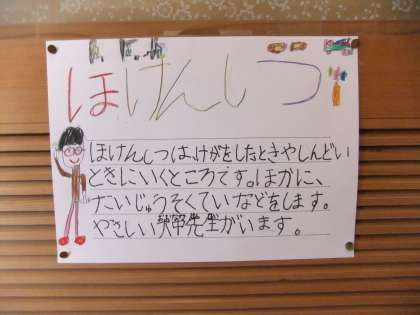 ほけんしつ
ほけんしつは、けがをしたときやしんどい
ときにいくところです。ほかに、
たいじゅうそくていなどをします。
やさしい 先生がいます。